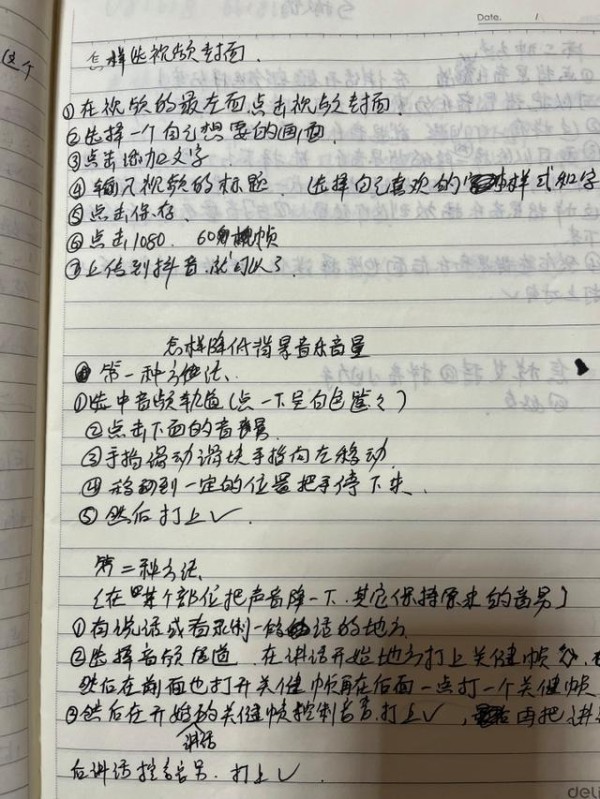 这个
Date. /
怎样选视频封面.
①在视频的最左面点击视频封面.
②选择一个自己想要的画面
③点击添加文字
④输入视频的标题. 选择自己喜欢的样式和字
⑤点击保存.
⑥点击1080. 60帧
⑦上传到抖音.就可以了.
怎样降低背景音乐音量
第一种方法.
①选中音频轨道(点一下呈白色)
②点击下面的音量
③手指滑动滑块手指向左移动.
④移动到一定的位置把手停下来.
⑤然后打上✓.
第二种方法.
(在某个部位把声音降一下.其它保持原来的音另)
①有说话或者录制一的话的地方
②选择音频 道. 在讲话开始地方打上关健帧
然后在前面也打开关健帧再在后面一点打一个关健帧
③然后在开始的关健帧控制音.打上✓, 再把讲
讲话
后讲话控音另. 打上✓.
deli